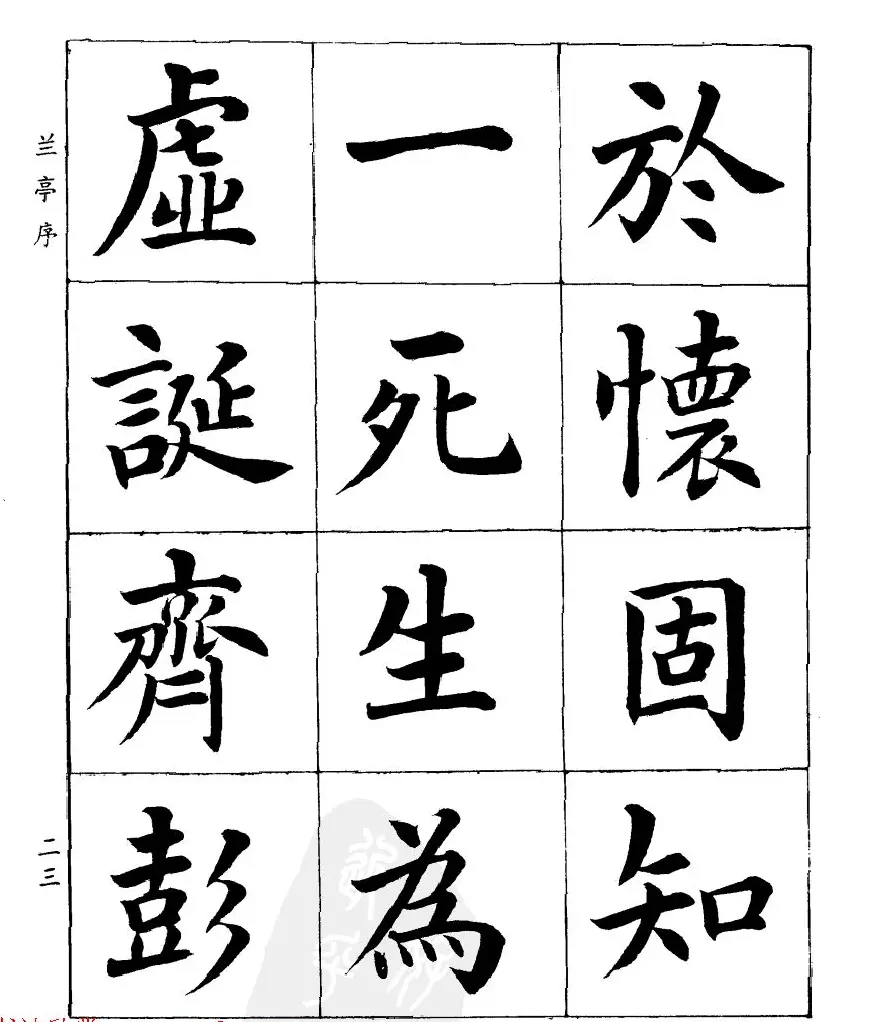 於懷固知
一死生為
虛誕齊彭
兰亭序
二三